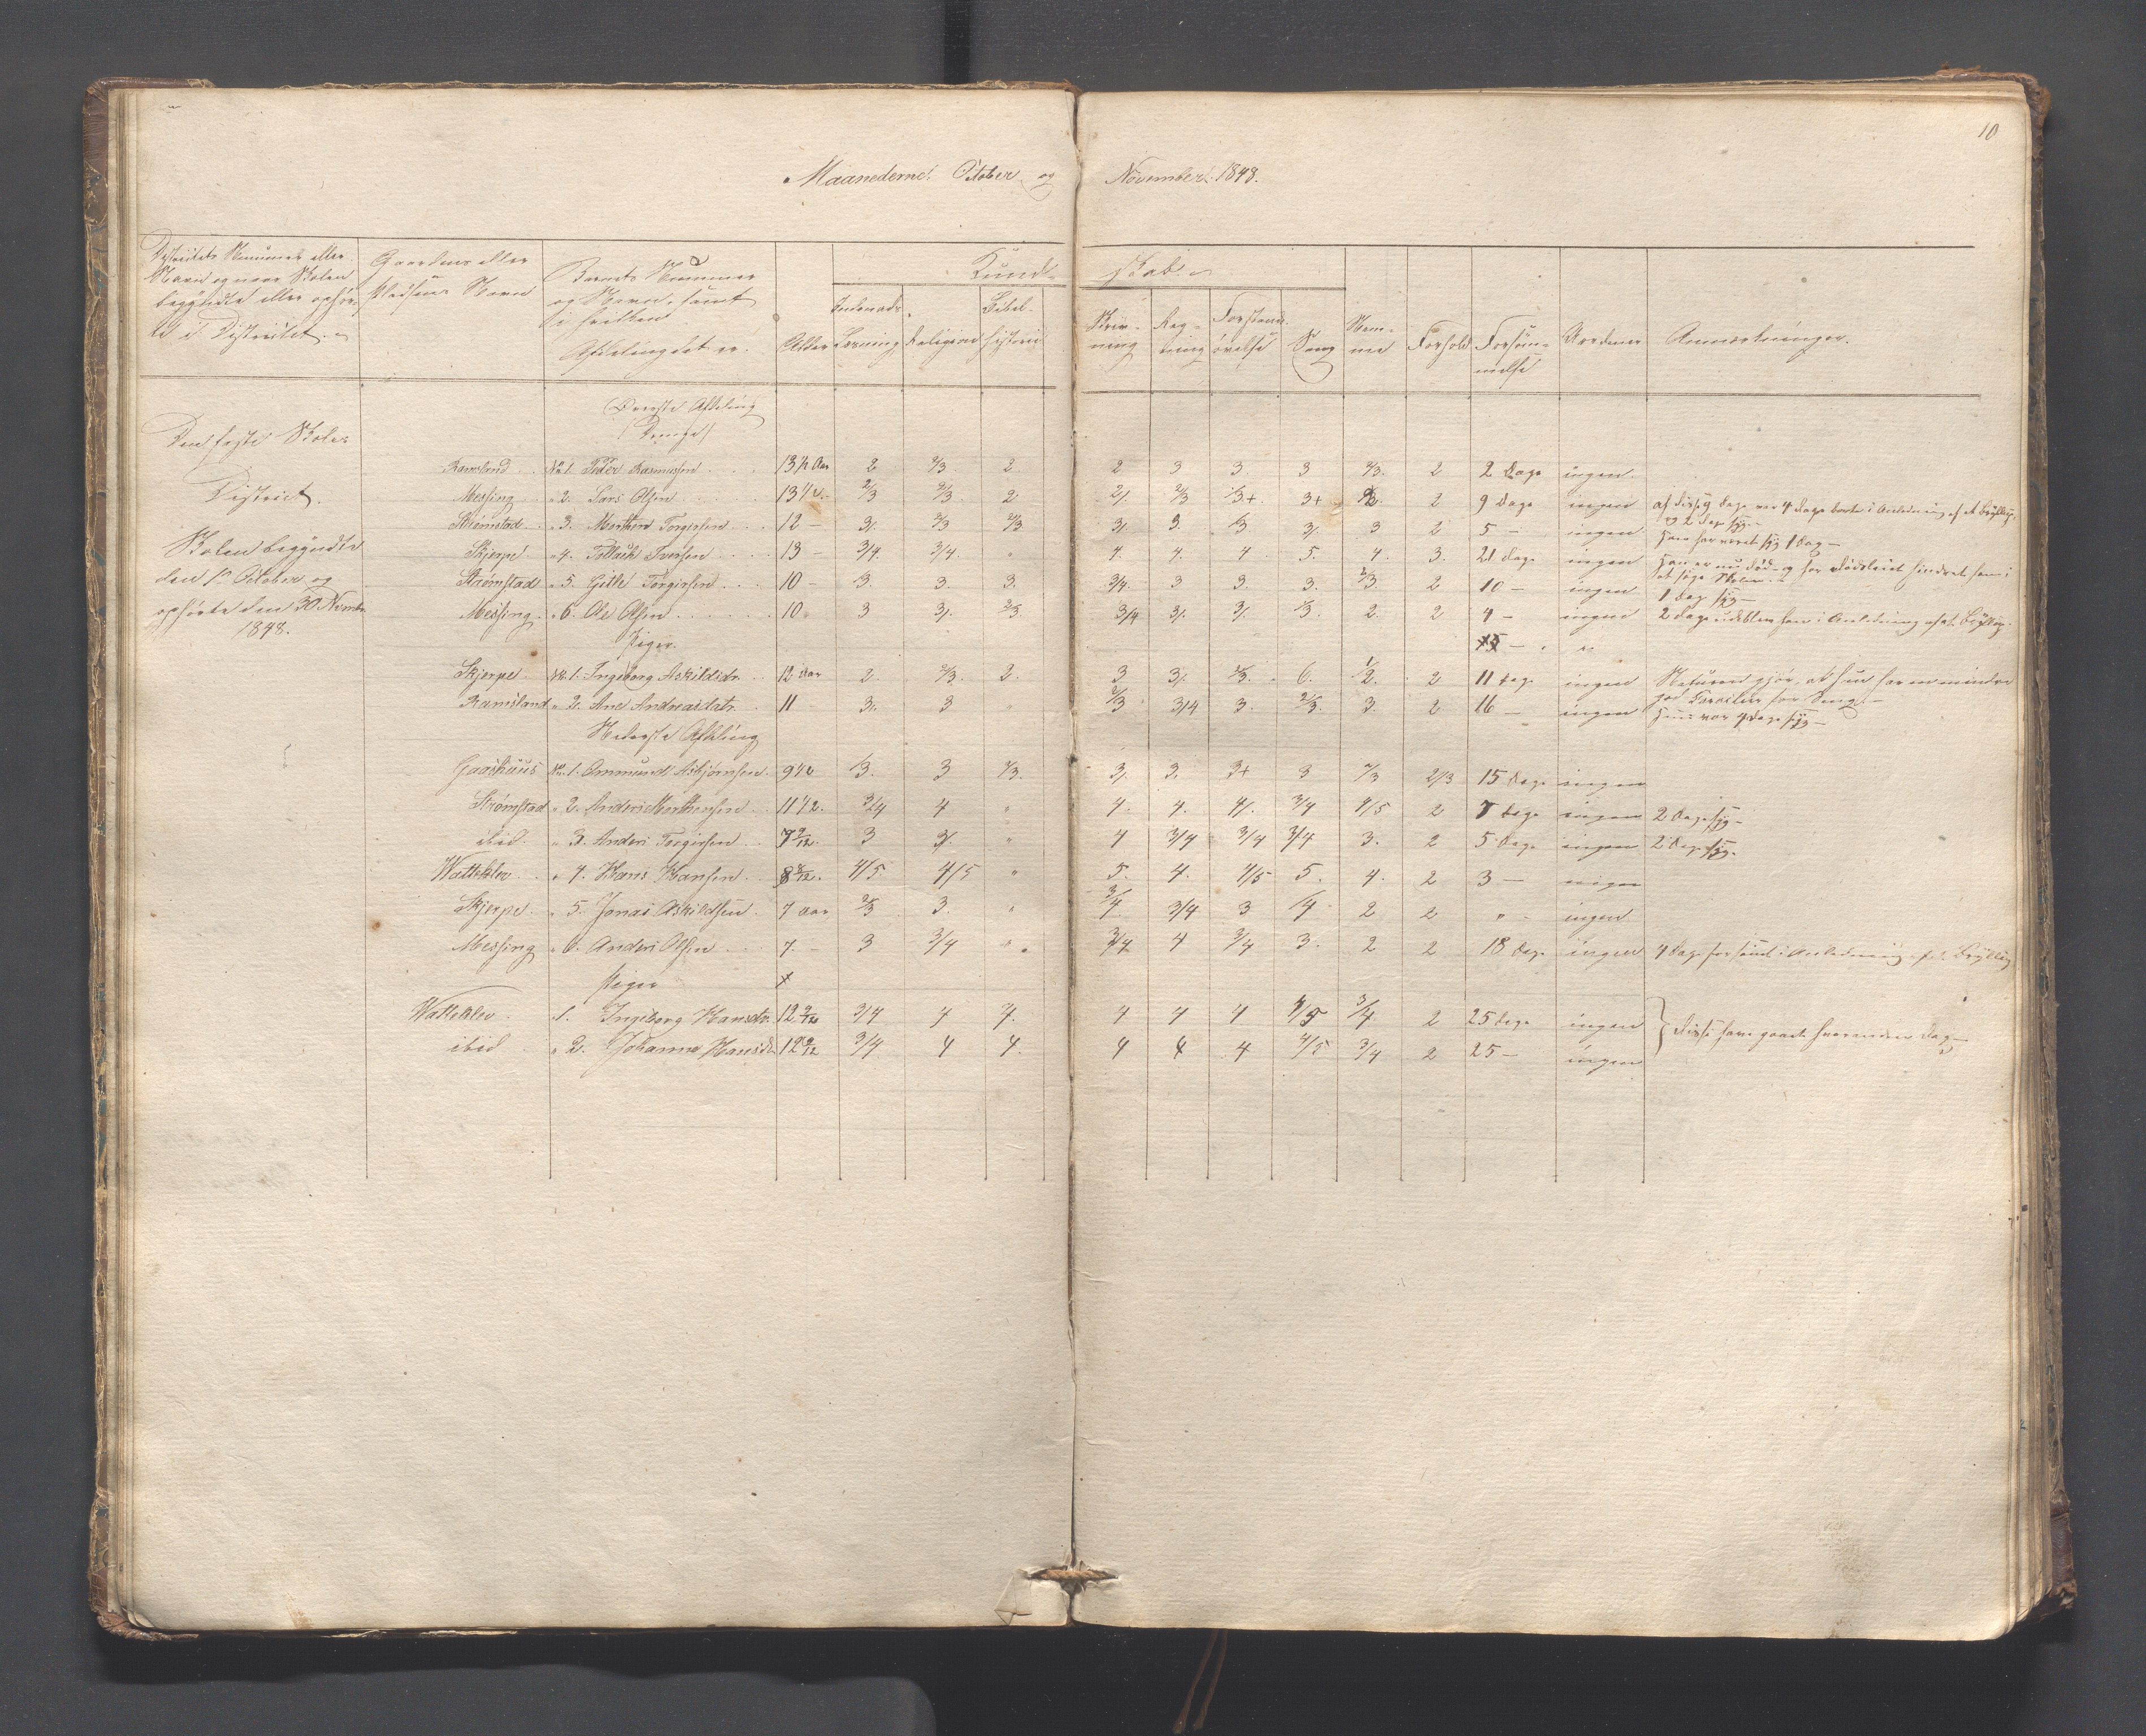 10
Maanederne October og November 1848.
Districtets Nummer eller Navn og naar Skolen begyndte eller ophørte i Districtet.
Gaardens eller Pladsens Navn
Barnets Nummer og Navn, samt i hvilken Afdeling det er.
Alder
Kundskab
Indenads-Læsning
Religion
Bibelhistorie
Skrivning
Regning
Forstandsøvelse
Sang
Nemme
Forhold
Forsømmelse
Uordener
Anmærkninger.
Øverste Afdeling
Drenge
Den faste Skoles District.
Skolen begyndte den 1ste October og ophørte den 30 Novembr 1848.
Ramsland No 1. Peder Rasmussen 13½ Aar 2 2/3 2 2 3 3 3 2/3. 2 2 Dage ingen
Messing " 2. Lars Olsen 13½ 2/3 2/3 2 2/. 2/3 3+ 3+ 2 9 Dage ingen af disse 9 Dage var 4 Dage borte i Anledning af et Bryllup, og 2 Dage syg
Strømstad " 3. Morthen Torgiersen 12 - 3/. 2/3 2/3 3/. 3. 3 3/. 3 2 5 - ingen Han har været syg 1 Dag
Skjerpe " 4. Tollack Iversen 13 - 3/4 3/4 " 4. 4. 4 5. 4. 3. 21 Dage ingen Han er nu død og har Dødsleiet hindret ham i at søge Skolen
Strømstad " 5. Gitle Torgiersen 10 - 3. 3. 3. 3/4. 3 3. 3. 2/3. 2 10 - ingen 1 Dag syg
Messing " 6. Ole Olsen 10. 3 3/. 2/3 3/4 3/. 3/. 3. 2. 2 4 - ingen 2 Dage udebleven i Anledning af et Bryllup
Piger.
Skjerpe No 1. Ingeborg Askildsdr. 12 Aar 2. 2/3. 2. 3 3/. 2/3. 6. 1/2. 2 11 Dage ingen Naturen gjør, at hun har en mindre god for Sang.
Ramsland " 2. Ane Andreasdatr. 11 3/. 3 " 2/3 3/4 3. 2/3. 3. 2 16 - ingen Hun var 4 Dage syg
Nederste Afdeling
Gaashuus No 1. Ommund Asbjørnsen 9½ 3. 3 2/3. 3/. 3. 3+ 3 2/3 2/3 15 Dage ingen
Strømstad " 2. Anders Morthensen 11½. 3/4 4 " 4. 4. 4/. 3/4 4/5 2 7 Dage ingen 2 Dage syg
ibid. " 3. Anders Torgiersen 7 9/12. 3 3/. " 4 3/4 3/4 3/4 3. 2 5 Dage ingen 2 Dage syg.
Watteklev " 4. Hans Hansen 4/5 4/5 " 5. 4. 4/5 5. 4. 2 3 - ingen
Skjerpe " 5. Jonas Askildsen 7 Aar 2/3 3. " 3/4 3/4 3 4 2 2 " - ingen
Messing " 6. Anders Olsen 7. - 3 3/4 " 3/4 4 3/4 3. 2 2 18 Dage ingen 4 Dage forsømt i Anledning af et Bryllup
Piger
Watteklev 1. Ingeborg Hansdtr. 3/4 4 4. 4 4 4 4/5 3/4 2 25 Dage ingen
ibid " 2. Johanna Hansdr. 3/4 4 4. 4 4 4 4/5 3/4 2 25 - ingen
Disse have gaaet hveranden Dag